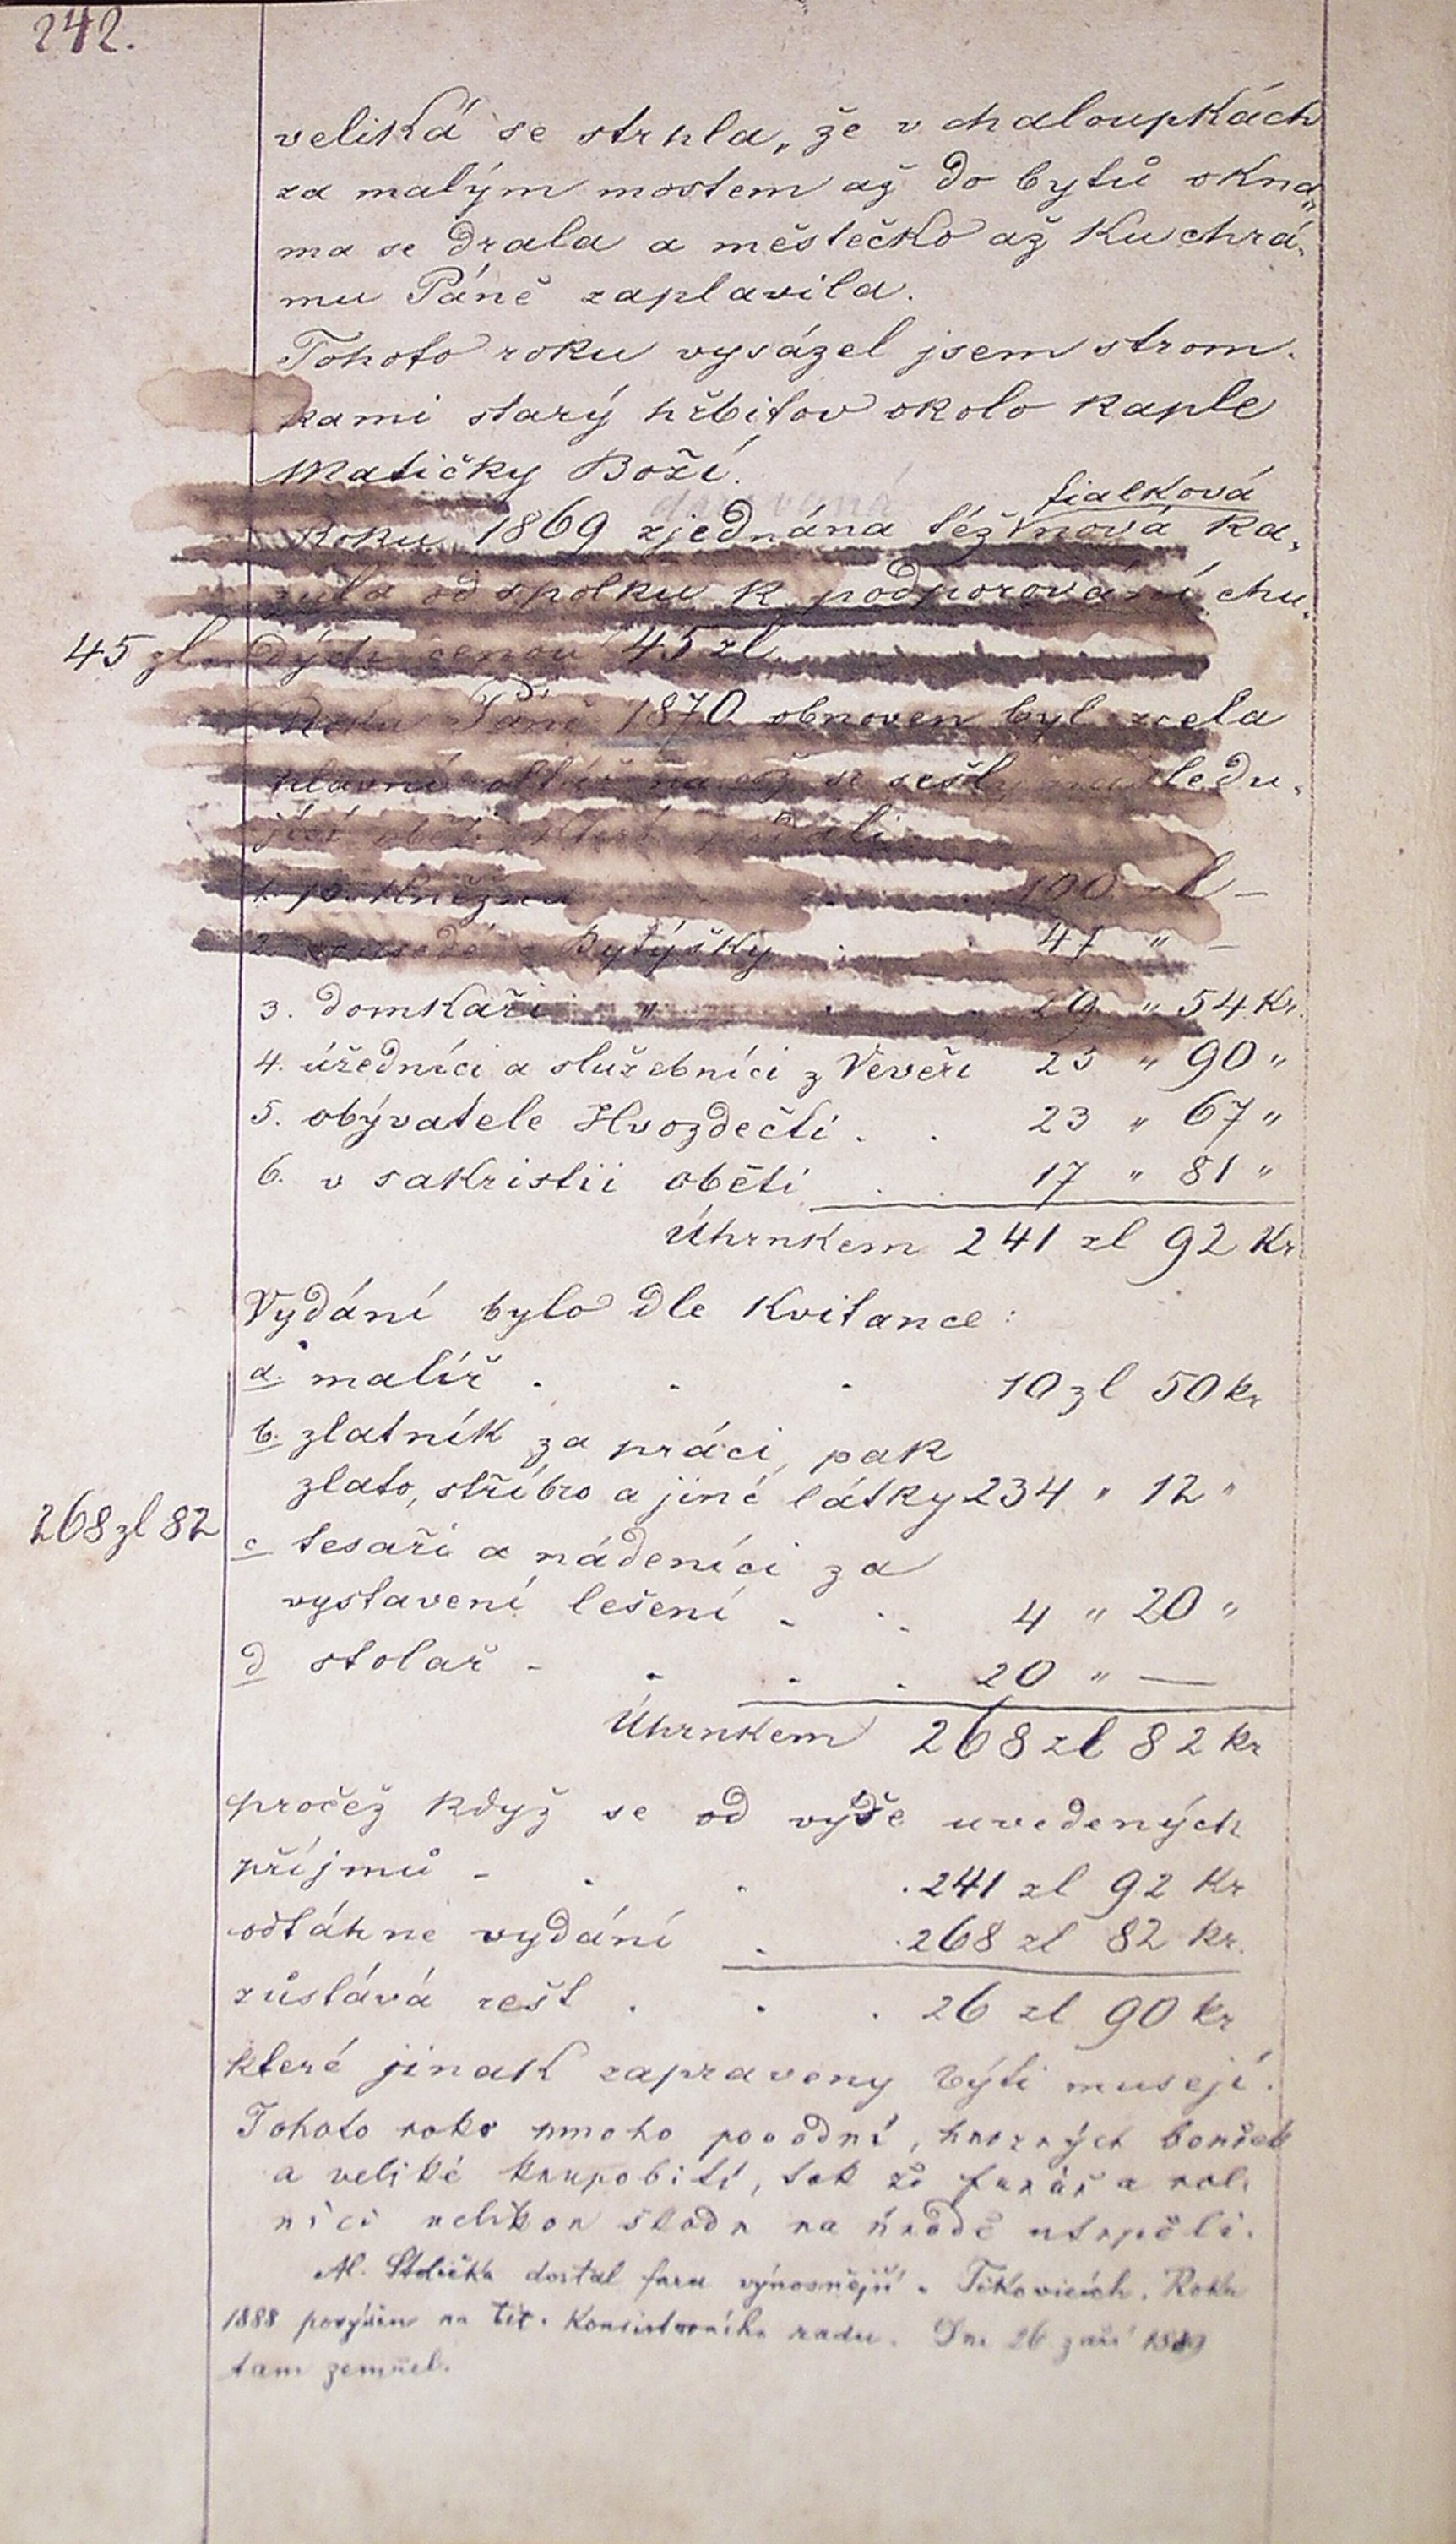 242.
veliká se strhla, že v chaloupkách
za malým mostem až do bytů okna„
ma se drala a městečko až ku chrá„
mu Páně zaplavila.
Tohoto roku vysázel jsem strom„
kami starý hřbitov okolo kaple
Matičky Boží.
fialková
Roku 1869 zjednána též nová ka„
zula od spolku k podporování chu„
45 zl. dých cenou 45 zl.
Roku Páně 1870 obnoven byl zcela
hlavní oltář na což se sešly následu„
jící oběti, které
1. Kněžna 100 zl —
2. sousedé z Bytýšky . . 47 „ —
3. domkáři „ . . 29 „ 54 Kr.
4. úředníci a služebníci z Veveří 23 „ 90 „
5. obývatele Hvozdečtí . . 23 „ 67 „
6. v sakristii oběti . . 17 „ 81 „
Úhrnkem 241 zl 92 Kr
Vydání bylo dle Kvitance :
a. malíř . . . 10 zl 50 kr
b. zlatník za práci, pak
zlato, stříbro a jiné látky 234 „ 12 „
268 zl 82
c tesaři a nádeníci za
vystavení lešení . . 4 „ 20 „
d stolař . . . . 20 „ —
Úhrnkem 268 zl 82 kr
pročež když se od výše uvedených
příjmů . . . . 241 zl 92 Kr
odtáhne vydání . . 268 zl 82 kr.
zůstává rest . . . 26 zl 90 kr
které jinak zapraveny býti musejí.
Tohoto roku mnoho povodní, hrozných bouřek
a veliké krupobití, tak že farář a rol„
níci velikou škodu na úrodě utrpěli.
Al. Stolička dostal faru výnosnější v Tikovicích. Roku
1888 povýšen na tit. Konsistorního radu. Dne 26 září 1889
tam zemřel.